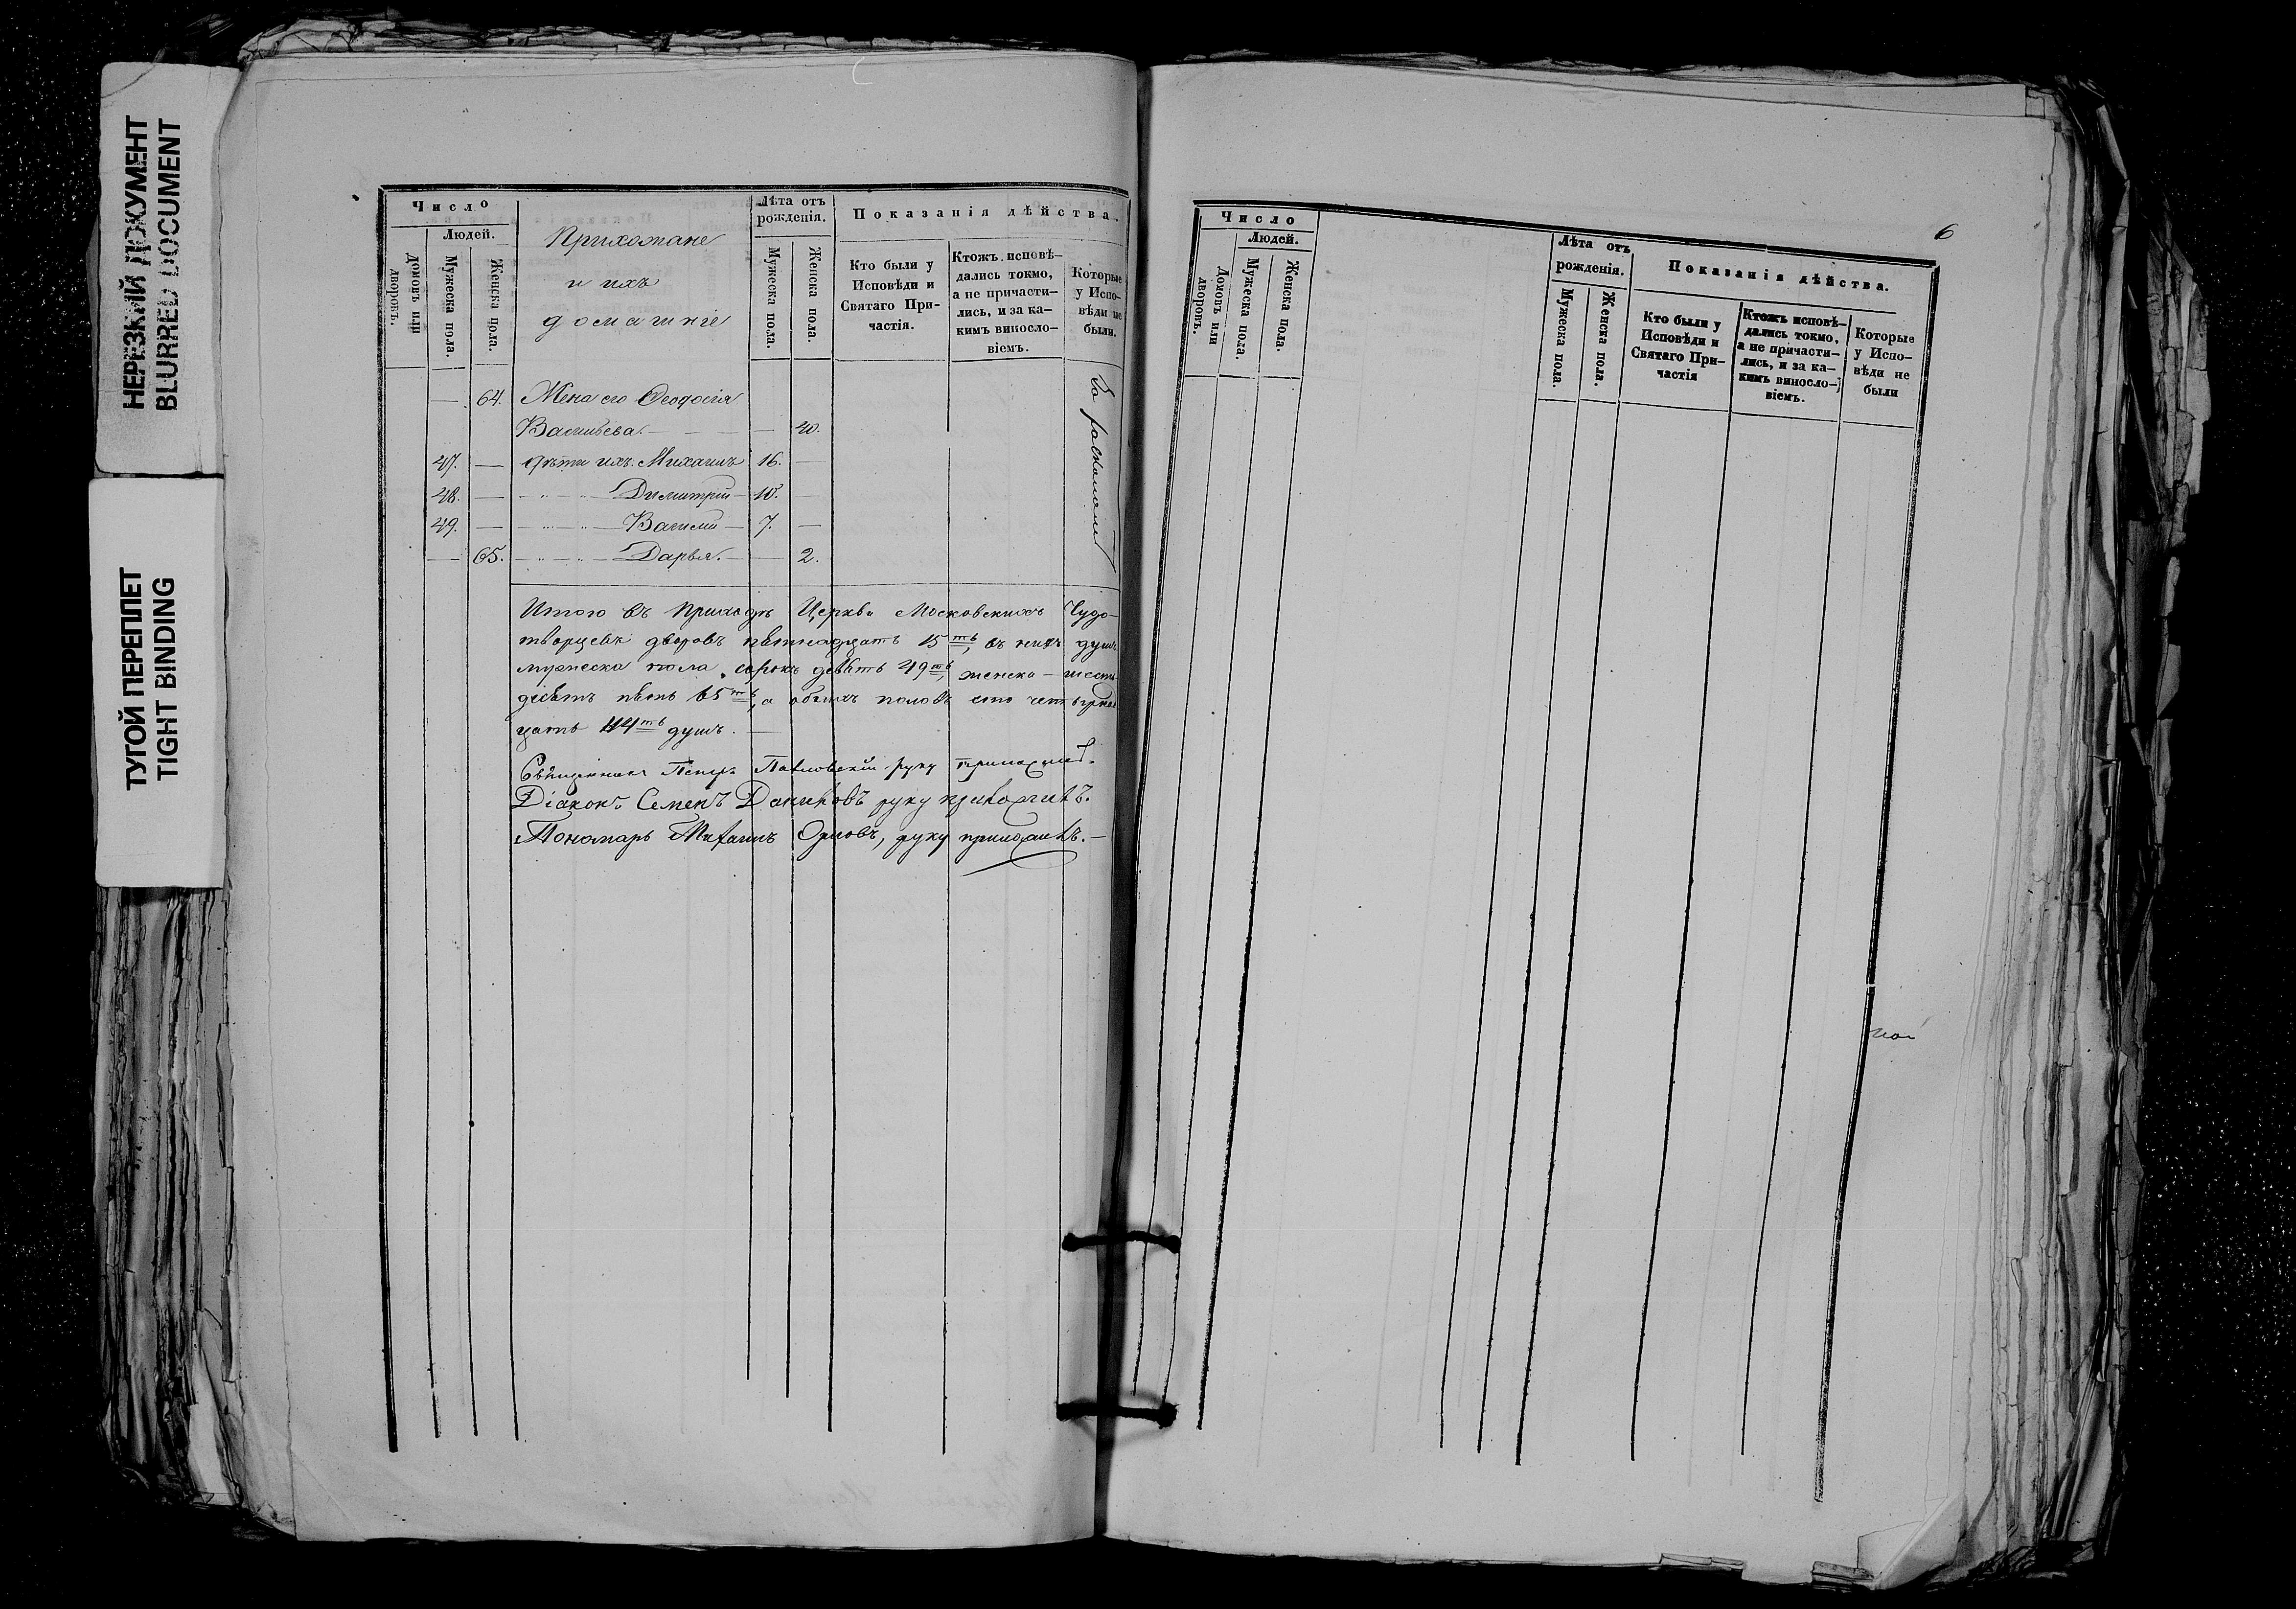 НЕРЕЗКИЙ ДОКУМЕНТ
BLURRED DOCUMENT
ТУГОЙ ПЕРЕПЛЕТ
TIGHT BINDING
Число
Людей.
Домовъ или дворовъ.
Мужеска пола.
Женска пола.
Прихожане
и ихъ
домашніе
Лѣта отъ
рожденія.
Мужеска пола.
Женска пола.
Показанія дѣйства.
Кто были у
Исповѣди и
Святаго При-
частія.
Ктожъ исповѣ-
дались токмо,
а не причасти-
лись, и за ка-
кимъ виносло-
віемъ.
Которые
у Испо-
вѣди не
были.
— 64. Жена его Ѳеодосія
Васильева. — — — — 40.
47. — дѣти ихъ: Михаилъ 16. —
48. — — „ — „ — Димитрій — 10. —
49. — — „ — „ — Василій — 7. —
— 65. — „ — „ — Дарья. — — 2.
За расколомъ
Итого въ приходѣ Церкви Московскихъ Чудо-
творцевъ дворовъ пятнадцать 15ть, въ нихъ душъ
мужеска пола сорокъ девять 49ть, женска — шесть
десятъ пять 65ть, а обоихъ половъ сто четырнад
цать 114ть душъ. —
Священникъ Петръ Павловскій руку приложилъ.
Діаконъ Семенъ руку приложилъ.
Пономарь Михаилъ Орловъ, руку приложилъ. —
6
Число
Людей.
Домовъ или дворовъ.
Мужеска пола.
Женска пола.
Лѣта отъ
рожденія.
Мужеска пола.
Женска пола.
Показанія дѣйства.
Кто были у
Исповѣди и
Святаго При-
частія
Ктожъ исповѣ-
дались токмо,
а не причасти-
лись, и за ка-
кимъ виносло-
віемъ.
Которые
у Испо-
вѣди не
были